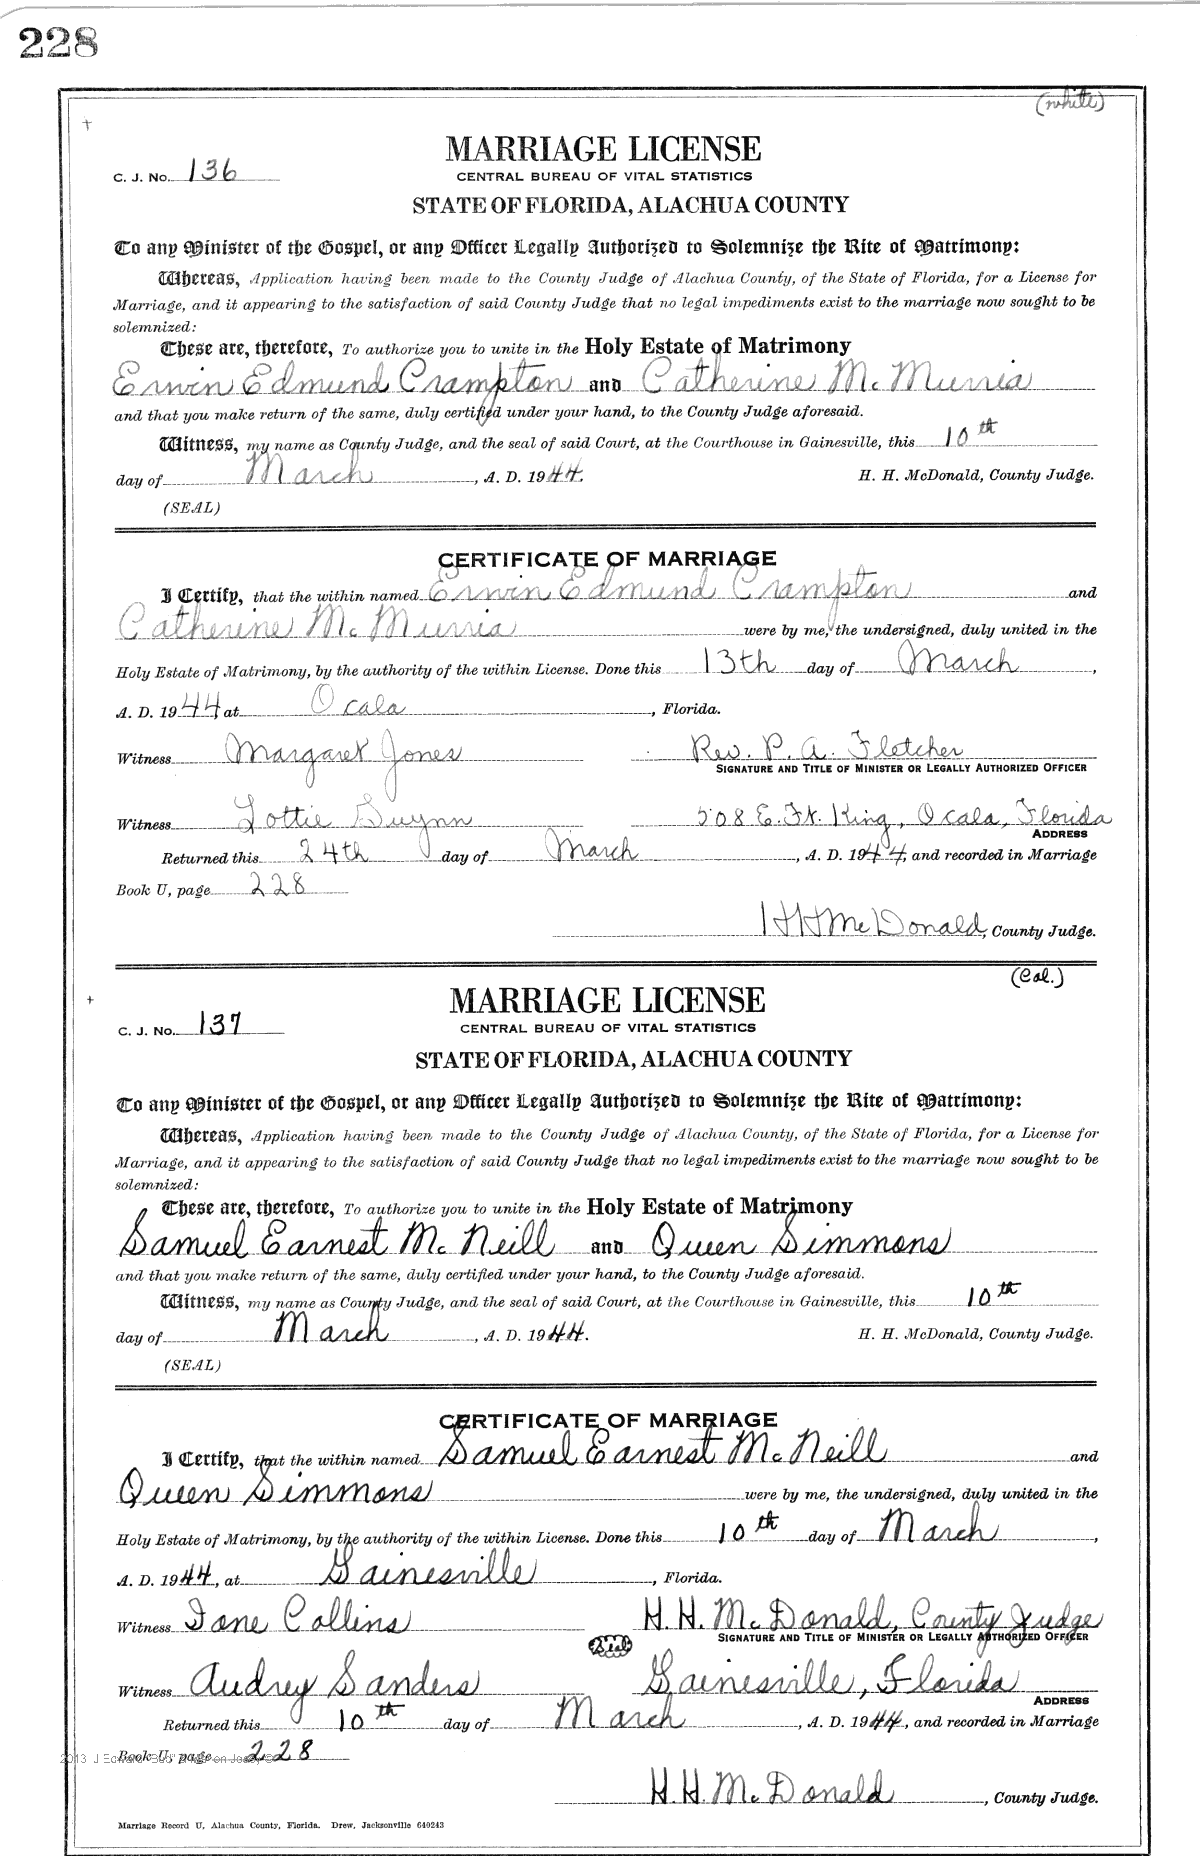 228
(white)
MARRIAGE LICENSE
C. J. No. 136
CENTRAL BUREAU OF VITAL STATISTICS
STATE OF FLORIDA, ALACHUA COUNTY
To any Minister of the Gospel, or any Officer Legally Authorized to Solemnize the Rite of Matrimony:
Whereas, Application having been made to the County Judge of Alachua County, of the State of Florida, for a License for
Marriage, and it appearing to the satisfaction of said County Judge that no legal impediments exist to the marriage now sought to be
solemnized:
These are, therefore, To authorize you to unite in the Holy Estate of Matrimony
Erwin Edmund Crampton and Catherine McMurria
and that you make return of the same, duly certified under your hand, to the County Judge aforesaid.
Witness, my name as County Judge, and the seal of said Court, at the Courthouse in Gainesville, this 10th
day of March, A. D. 1944. H. H. McDonald, County Judge.
(SEAL)
CERTIFICATE OF MARRIAGE
I Certify, that the within named Erwin Edmund Crampton and
Catherine McMurria were by me, the undersigned, duly united in the
Holy Estate of Matrimony, by the authority of the within License. Done this 13th day of March,
A. D. 1944, at Ocala, Florida.
Witness Margaret Jones Rev. P. A. Fletcher
SIGNATURE AND TITLE OF MINISTER OR LEGALLY AUTHORIZED OFFICER
Witness Lottie Gwynn 508 E. Ft. King, Ocala, Florida
ADDRESS
Returned this 24th day of March, A. D. 1944, and recorded in Marriage
Book U, page 228
HHMcDonald, County Judge.
(Col.)
MARRIAGE LICENSE
C. J. No. 137
CENTRAL BUREAU OF VITAL STATISTICS
STATE OF FLORIDA, ALACHUA COUNTY
To any Minister of the Gospel, or any Officer Legally Authorized to Solemnize the Rite of Matrimony:
Whereas, Application having been made to the County Judge of Alachua County, of the State of Florida, for a License for
Marriage, and it appearing to the satisfaction of said County Judge that no legal impediments exist to the marriage now sought to be
solemnized:
These are, therefore, To authorize you to unite in the Holy Estate of Matrimony
Samuel Earnest McNeill and Queen Simmons
and that you make return of the same, duly certified under your hand, to the County Judge aforesaid.
Witness, my name as County Judge, and the seal of said Court, at the Courthouse in Gainesville, this 10th
day of March, A. D. 1944. H. H. McDonald, County Judge.
(SEAL)
CERTIFICATE OF MARRIAGE
I Certify, that the within named Samuel Earnest McNeill and
Queen Simmons were by me, the undersigned, duly united in the
Holy Estate of Matrimony, by the authority of the within License. Done this 10th day of March,
A. D. 1944, at Gainesville, Florida.
Witness Ione Collins H. H. McDonald, County Judge
SIGNATURE AND TITLE OF MINISTER OR LEGALLY AUTHORIZED OFFICER
Seal
Witness Audrey Sanders Gainesville, Florida
ADDRESS
Returned this 10th day of March, A. D. 1944, and recorded in Marriage
Book U, page 228
2013 J Edward "Bud"
H. H. McDonald, County Judge.
Marriage Record U, Alachua County, Florida. Drew, Jacksonville 640243